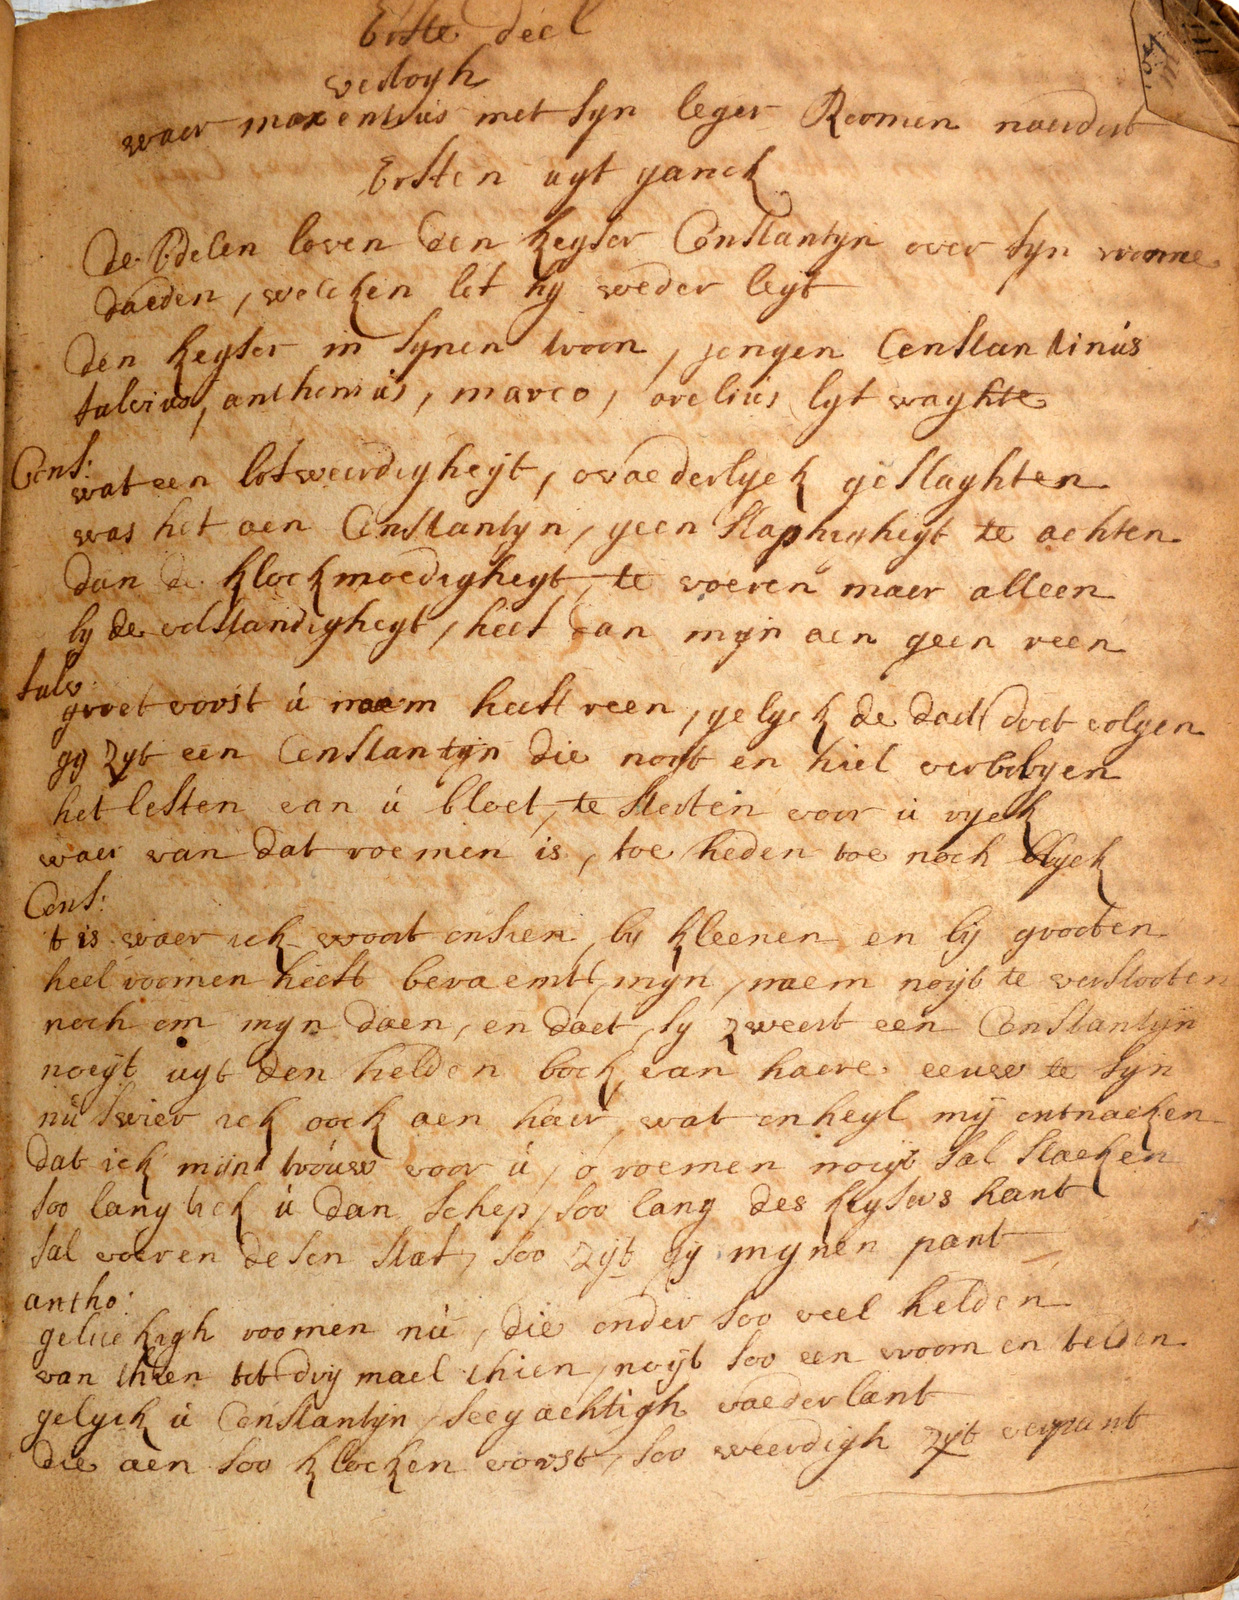 Erste deel
vertogh
waer maxentius met syn leger Roomen naerdert
Ersten uyt ganck
De Edelen loven den keyser Constantyn over syn vroome
daeden, welcken lof hy weder leyt
den keyser in synen troon, jongen Constantinus
fulvius, anthonius, marco, orelius, lyf waghte
Const:
wat een lofweerdigheyt, o vaederlyck geslaghten
was het aen Constantyn, geen slaphertigheyt te achten
dan de klockmoedigheyt, te voeren maer alleen
by de volstandigheyt, heef dan myn aen geen reen
fulv:
groet vorst ú naem heeft reen, gelyck de daet doet volgen
gy zyt een Constantyn die noyt en hiel verbolgen
het lesten van ú bloet, te storten voor ú ryck
waer van dat roemen is, toe heden toe noch blyck
Cons:
t is waer ick woort onsien, by kleenen en by grooten
heel roomen heeft beraemtt, myn, naem noyt te verstooten
noch om myn daen, en daet, sy zweert een Constantyn
noeyt uyt den helden boek, van haere eeuw te syn
nú swier ick oock aen haer, wat onheyl mij ontnaeken
dat ick mijne troúw voor ú, o roemen noeyt sal staeken
soo lang ick ú dan schep, soo lang des keysers hant
sal voeren desen staf, soo zijt gij mijnen pant
antho:
geluckigh roomen nú, die onder soo veel helden
van thien tot dry mael thien, noijt soo een vroom en telden
gelyck ú Constantyn, seegachtigh vaederlant
die aen soo klocken vorst, soo weerdigh zyt verpant